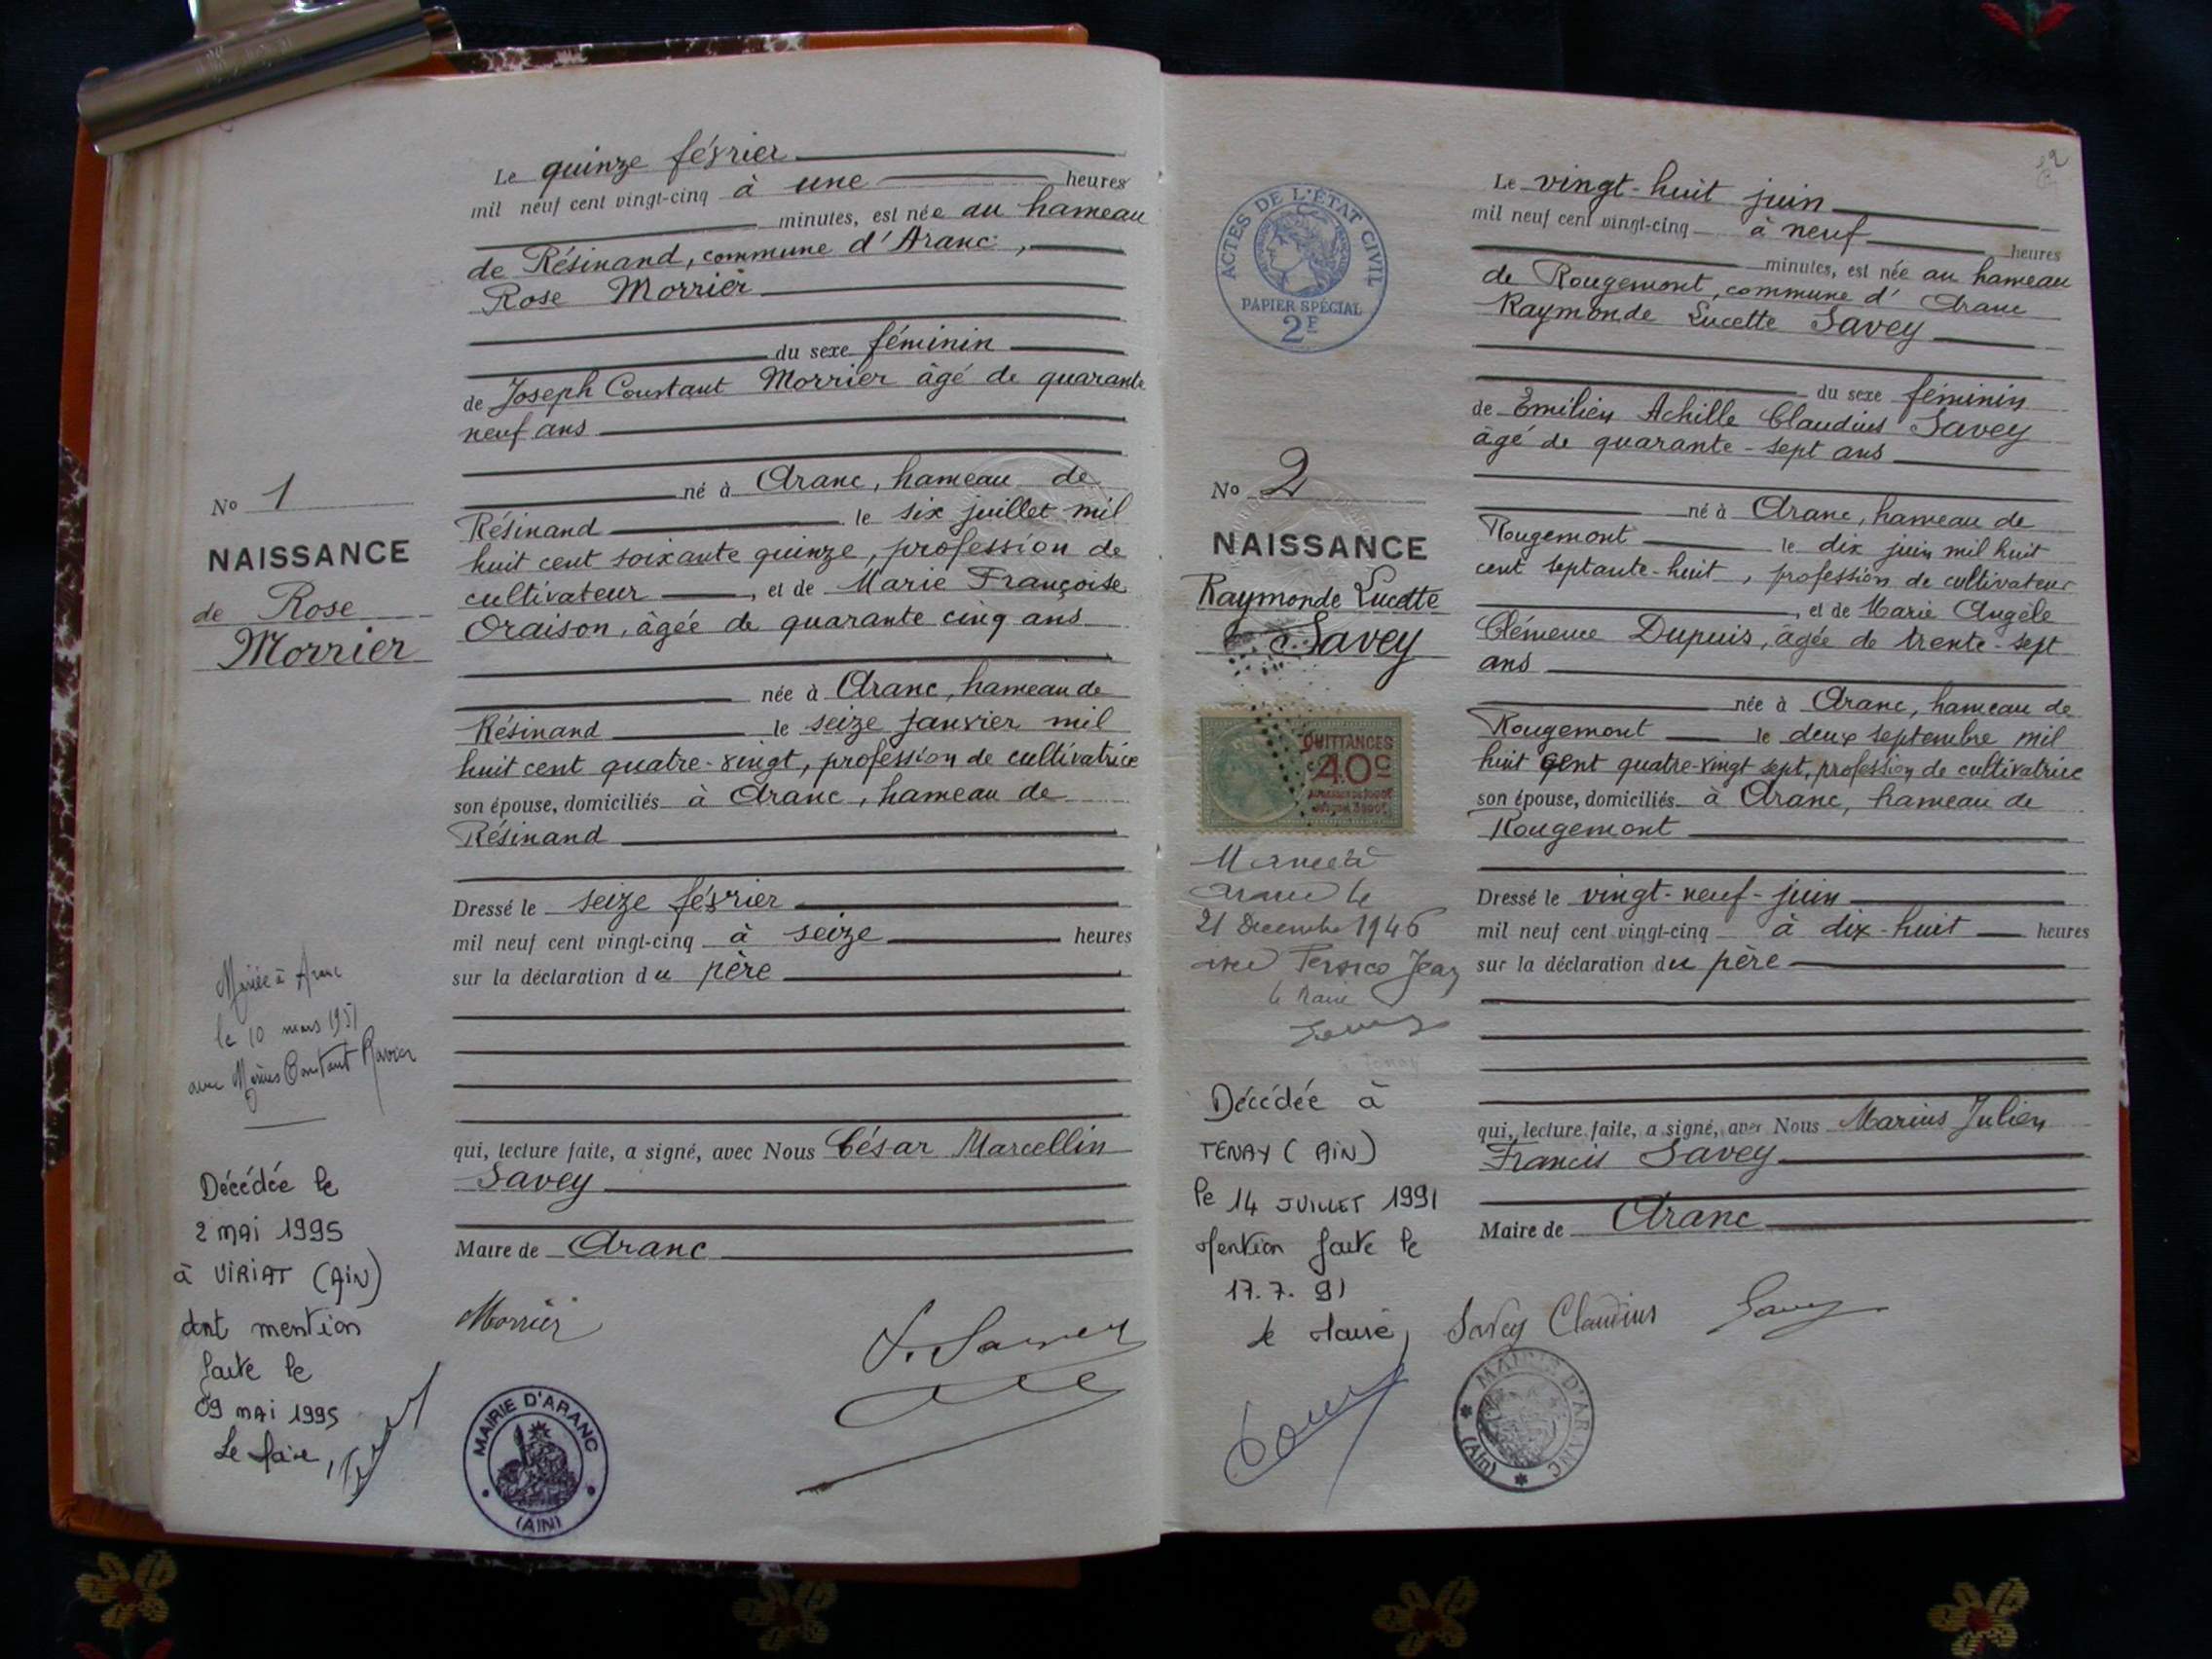 Le quinze février
mil neuf cent vingt-cinq à une heures
minutes, est née au hameau
de Résinand, commune d'Aranc,
Rose Morrier
du sexe féminin
de Joseph Constant Morrier âgé de quarante
neuf ans
né à Aranc, hameau de
Résinand le six juillet mil
huit cent soixante quinze, profession de
cultivateur, et de Marie Françoise
Oraison, âgée de quarante cinq ans
née à Aranc, hameau de
Résinand le seize janvier mil
huit cent quatre-vingt, profession de cultivatrice
son épouse, domiciliés à Aranc, hameau de
Résinand
Dressé le seize février
mil neuf cent vingt-cinq à seize heures
sur la déclaration du père
qui, lecture faite, a signé, avec Nous César Marcellin
Savey
Maire de Aranc
Morrier
Savey
MAIRIE D'ARANC
(AIN)
No 1
NAISSANCE
de Rose
Morrier
Mariée à Aranc
le 10 mars 1951
avec Marius Constant Ravier
Décédée le
2 MAI 1995
à VIRIAT (AIN)
dont mention
faite le
09 MAI 1995
Le Maire,
ACTES DE L'ÉTAT CIVIL
PAPIER SPÉCIAL
2F
No 2
NAISSANCE
Raymonde Lucette
Savey
QUITTANCES
40c
Aranc le
21 Decembre 1946
Persico Jean
le Maire
Décédée à
TENAY (AIN)
le 14 JUILLET 1991
Mention faite le
17.7.91
Le Maire,
Le vingt-huit juin
mil neuf cent vingt-cinq à neuf heures
minutes, est née au hameau
de Rougemont, commune d'Aranc
Raymonde Lucette Savey
du sexe féminin
de Emilien Achille Claudius Savey
âgé de quarante-sept ans
né à Aranc, hameau de
Rougemont le dix juin mil huit
cent septante-huit, profession de cultivateur
, et de Marie Angèle
Clémence Dupuis, âgée de trente-sept
ans
née à Aranc, hameau de
Rougemont le deux septembre mil
huit cent quatre-vingt sept, profession de cultivatrice
son épouse, domiciliés à Aranc, hameau de
Rougemont
Dressé le vingt-neuf-juin
mil neuf cent vingt-cinq à dix-huit heures
sur la déclaration du père
qui, lecture faite, a signé, avec Nous Marius Julien
Francis Savey
Maire de Aranc
Savey Claudius Savey
MAIRIE D'ARANC
(Ain)